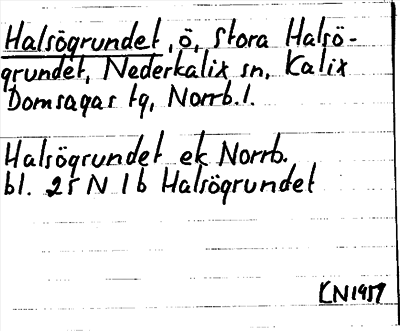 Halsögrundet, ö, Stora Halsö-
grundet, Nederkalix sn, Kalix
Domsagas tg, Norrb. l.
Halsögrundet ek Norrb.
bl. 25 N 1 b Halsögrundet